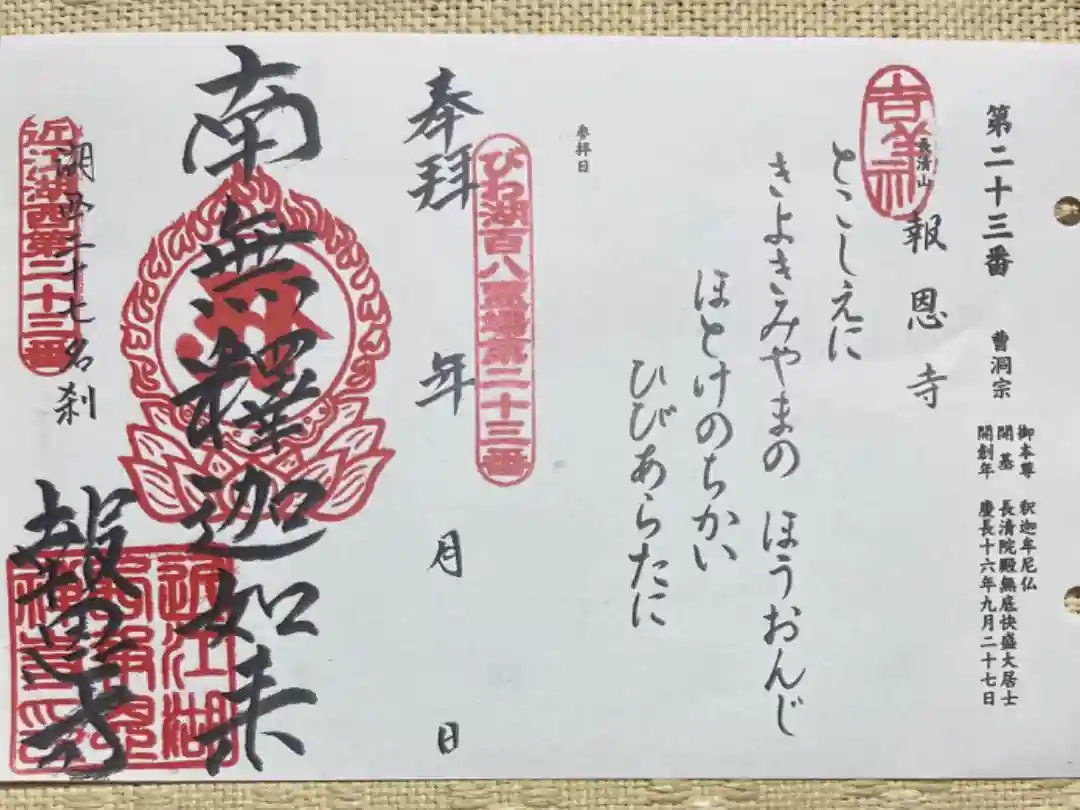 第二十三番 曹洞宗
御本尊 釈迦牟尼仏
開基 長清院殿無底快盛大居士
開創年 慶長十六年九月二十七日
長清山
報恩寺
とこしえに
きよきみやまの ほうおんじ
ほとけのちかい
ひびあらたに
参拝日
びわ湖百八霊場第二十三番
奉拝 年 月 日
南無釋迦如来
報恩寺
湖西二十七名刹
近江湖西第二十三番
近江湖